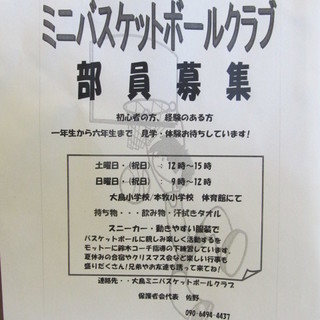 ミニバスケットボールクラブ
部員募集
初心者の方、経験のある方
一年生から六年生まで 見学・体験お待ちしています!
土曜日・(祝日) ・12時〜15時
日曜日・(祝日) ・ 9時〜12時
大鳥小学校/本牧小学校 体育館にて
持ち物・・・飲み物・汗拭きタオル
スニーカー・動きやすい服装で
バスケットボールに親しみ楽しく活動するを
モットーに鈴木コーチ指導の下練習しています。
夏休みの合宿やクリスマス会など楽しい行事も
盛りだくさん!兄弟やお友達も誘って来てね!
連絡先・・大鳥ミニバスケットボールクラブ
保護者会代表 佐野
090-6494-4437